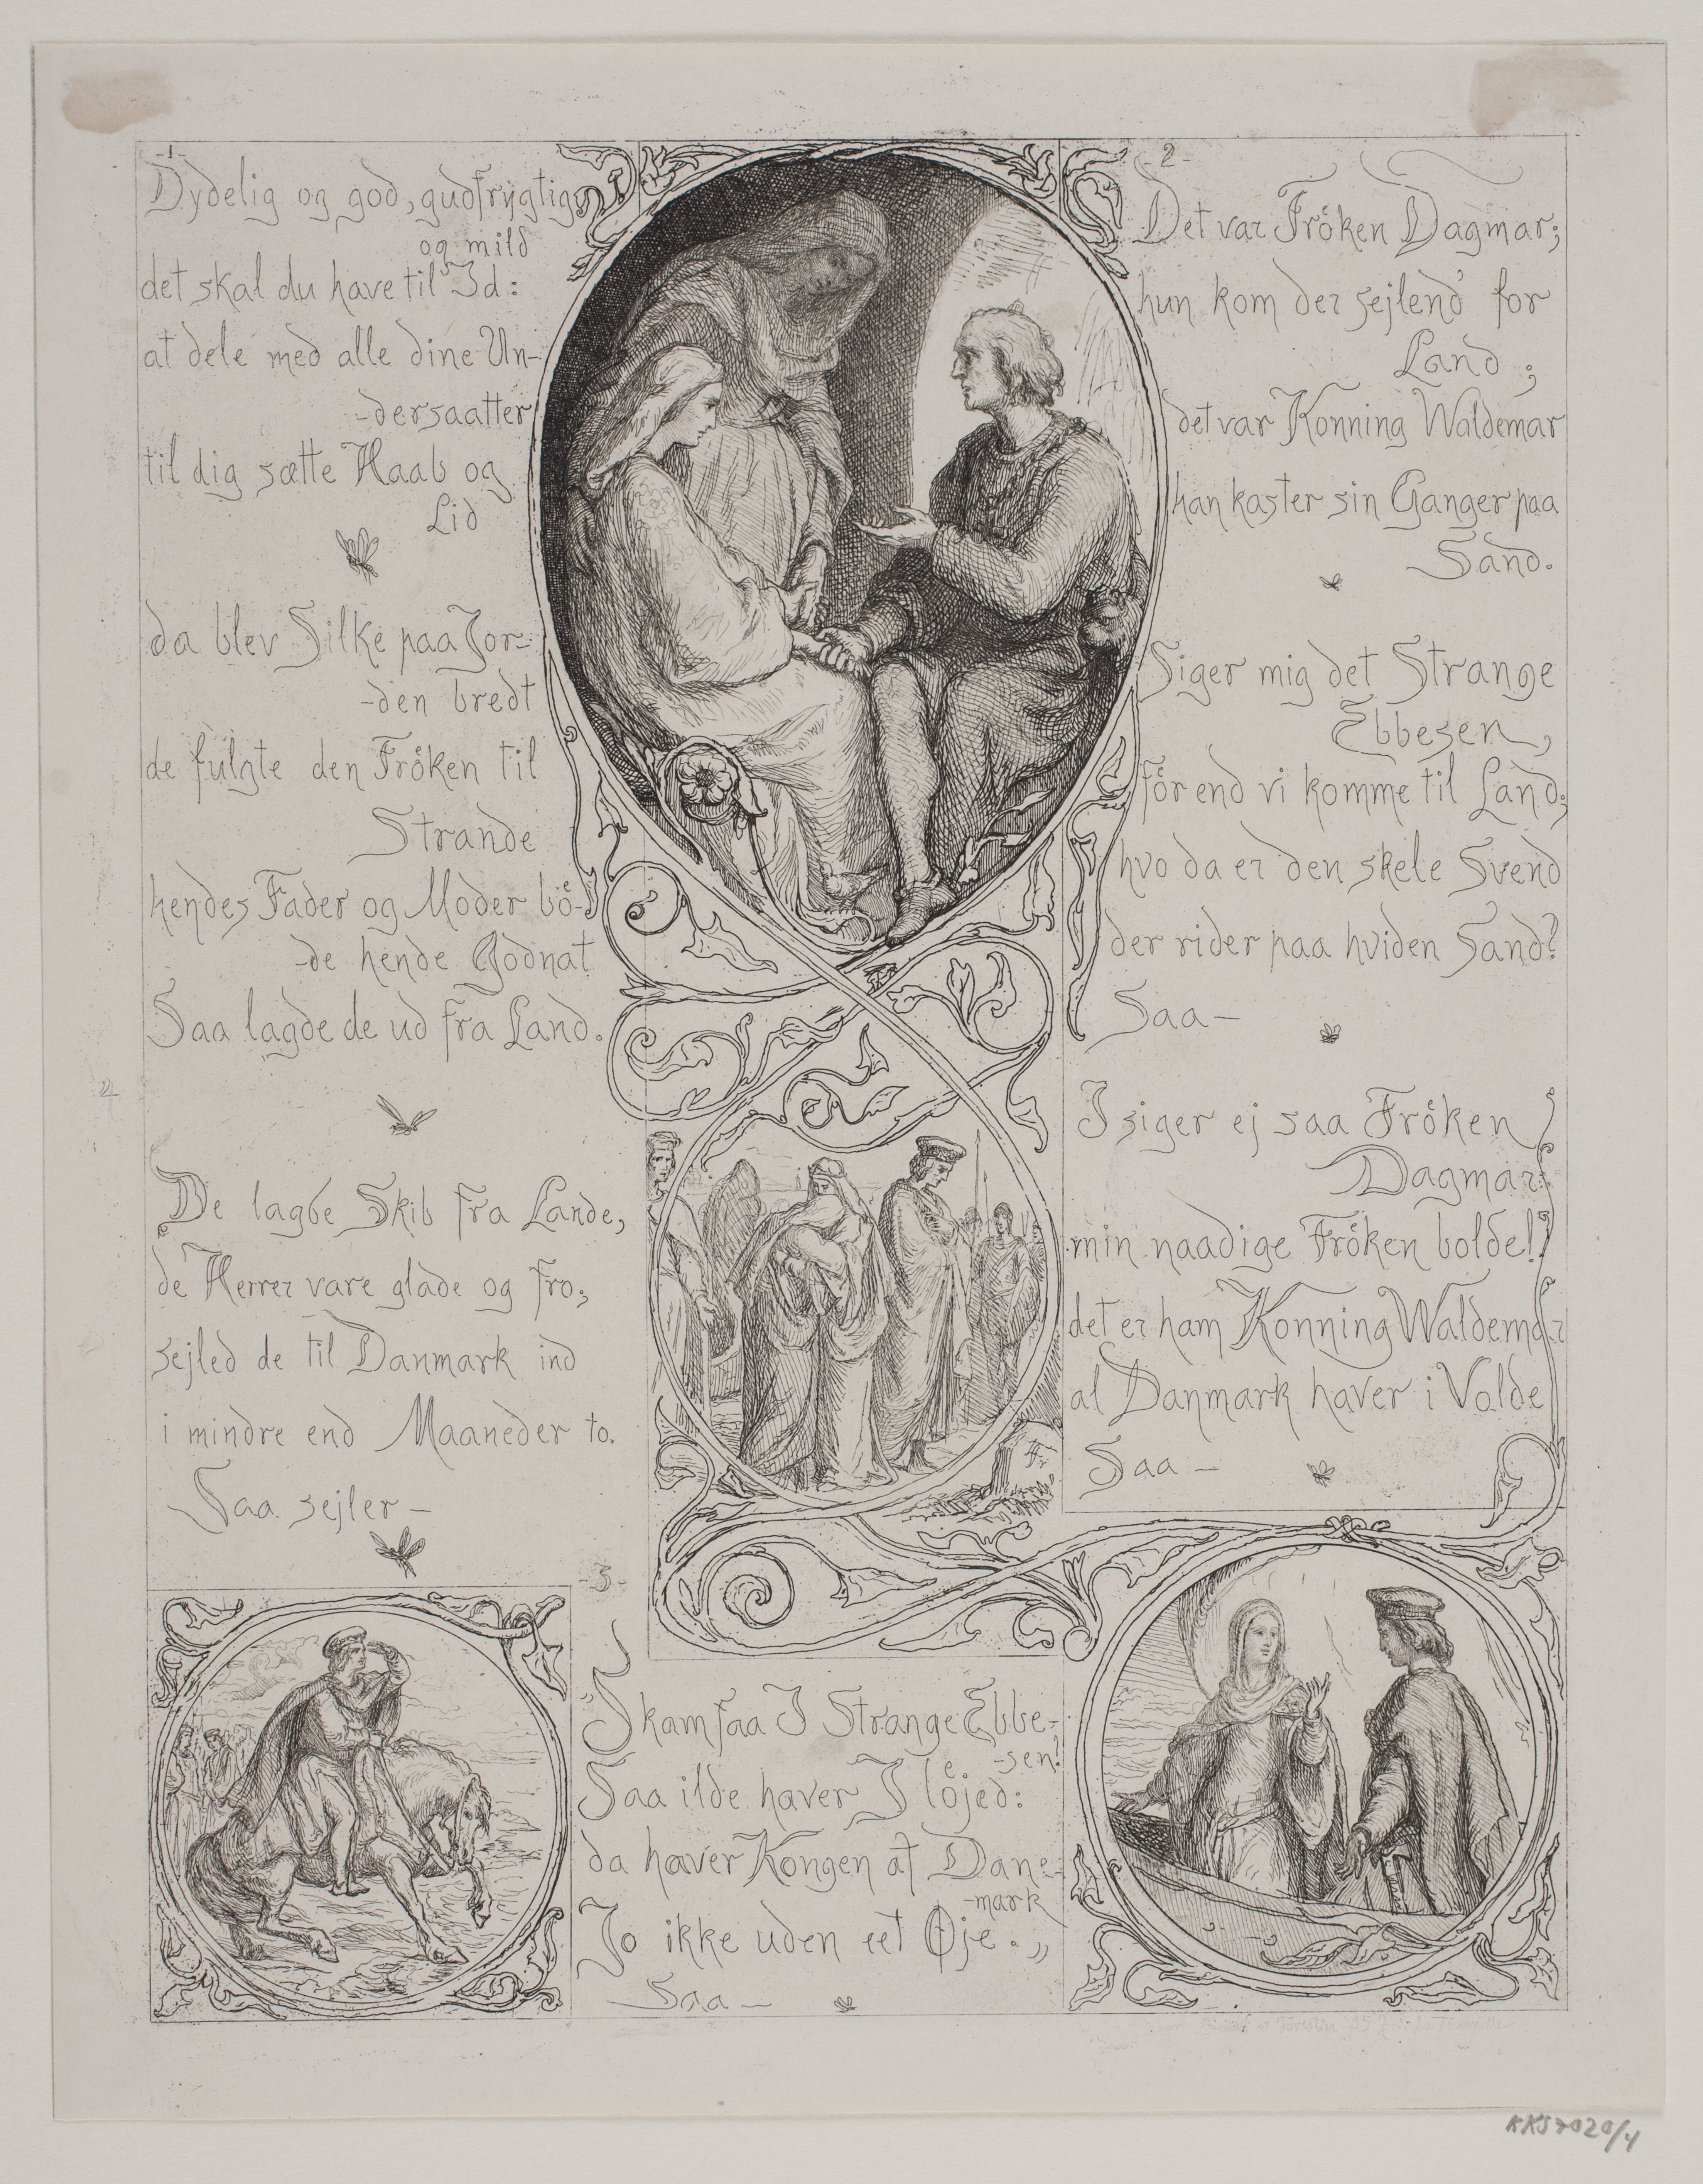 -1-
Dydelig og god, gudfrygtig
og mild
det skal du have til Id:
at dele med alle dine Un-
-dersaatter
til dig sætte Haab og
Lid
da blev Silke paa Jor-
-den bredt
de fulgte den Fröken til
Strande
hendes Fader og Moder bö-
-de hende Godnat
Saa lagde de ud fra Land.
De lagde Skib fra Lande,
de Herrer vare glade og fro;
sejled de til Danmark ind
i mindre end Maaneder to.
Saa sejler —
-2-
Det var Fröken Dagmar;
hun kom der sejlend' for
Land;
det var Konning Waldemar
han kaster sin Ganger paa
Sand.
Siger mig det Strange
Ebbesen,
för end vi komme til Land;
hvo da er den skele Svend
der rider paa hviden Sand?
Saa —
I siger ej saa Fröken
Dagmar:
min naadige Fröken bolde!
det er ham Konning Waldemar
al Danmark haver i Volde
Saa —
-3-
"Skam faa I Strange Ebbe-
-sen!
Saa ilde haver I löjed:
da haver Kongen af Dane-
-mark
Jo ikke uden eet Øje."
Saa —
KKS7020/4